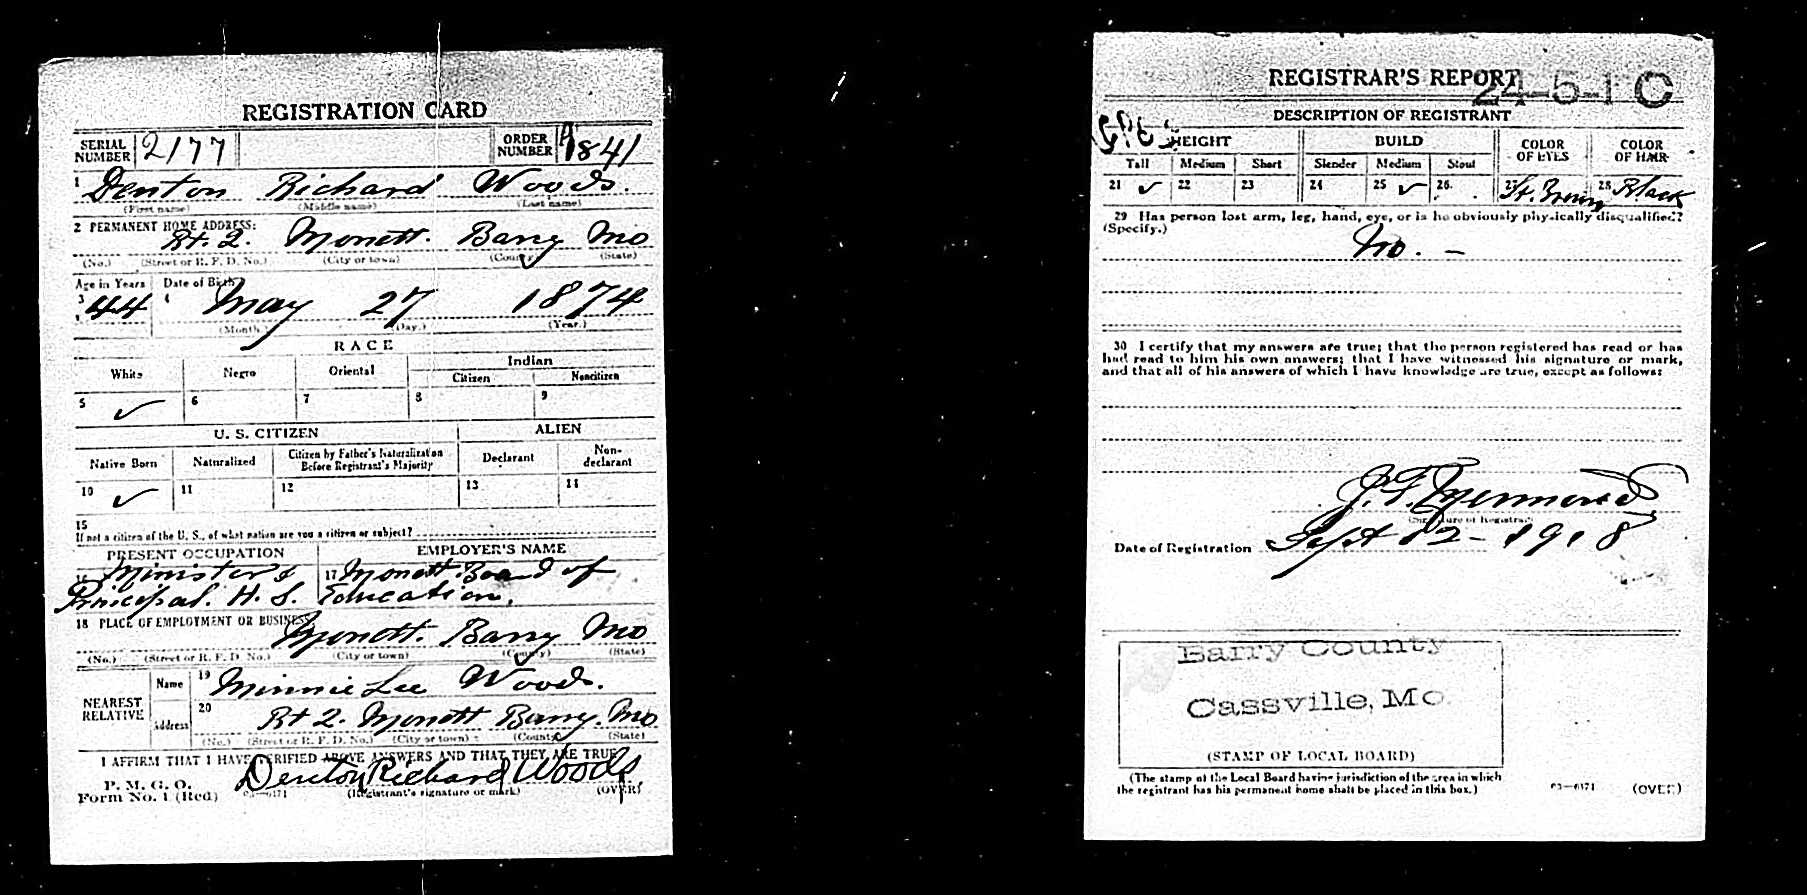 REGISTRATION CARD
SERIAL NUMBER 2177 ORDER NUMBER A1841
1 Denton Richard Woods.
(First name) (Middle name) (Last name)
2 PERMANENT HOME ADDRESS:
Rt. 2. Monett. Barry Mo
(No.) (Street or R. F. D. No.) (City or town) (County) (State)
Age in Years Date of Birth
3 44 4 May 27 1874
(Month.) (Day.) (Year.)
RACE
White Negro Oriental Indian
Citizen Noncitizen
5 ✓ 6 7 8 9
U. S. CITIZEN ALIEN
Native Born Naturalized Citizen by Father's Naturalization Before Registrant's Majority Declarant Non-declarant
10 ✓ 11 12 13 14
15
If not a citizen of the U. S., of what nation are you a citizen or subject?
PRESENT OCCUPATION EMPLOYER'S NAME
16 Minister & 17 Monett Board of
Principal. H. S. Education.
18 PLACE OF EMPLOYMENT OR BUSINESS
Monett. Barry Mo
(No.) (Street or R. F. D. No.) (City or town) (County) (State)
NEAREST RELATIVE
Name 19 Minnie Lee Woods.
Address 20 Rt 2. Monett Barry. Mo
(No.) (Street or R. F. D. No.) (City or town) (County) (State)
I AFFIRM THAT I HAVE VERIFIED ABOVE ANSWERS AND THAT THEY ARE TRUE
P. M. G. O.
Form No. 1 (Red) 03—6171 Denton Richard Woods
(Registrant's signature or mark) (OVER)
REGISTRAR'S REPORT
24-5-1 C
DESCRIPTION OF REGISTRANT
HEIGHT BUILD COLOR OF EYES COLOR OF HAIR
Tall Medium Short Slender Medium Stout
21 ✓ 22 23 24 25 ✓ 26. 27 Lt. Brown 28 Black
29 Has person lost arm, leg, hand, eye, or is he obviously physically disqualified?
(Specify.)
No. —
30 I certify that my answers are true; that the person registered has read or has
had read to him his own answers; that I have witnessed his signature or mark,
and that all of his answers of which I have knowledge are true, except as follows:
J. F.
(Signature of Registrar)
Date of Registration Sept 12 - 1918
Barry County
Cassville, Mo.
(STAMP OF LOCAL BOARD)
(The stamp of the Local Board having jurisdiction of the area in which
the registrant has his permanent home shall be placed in this box.)
03—6171 (OVER)